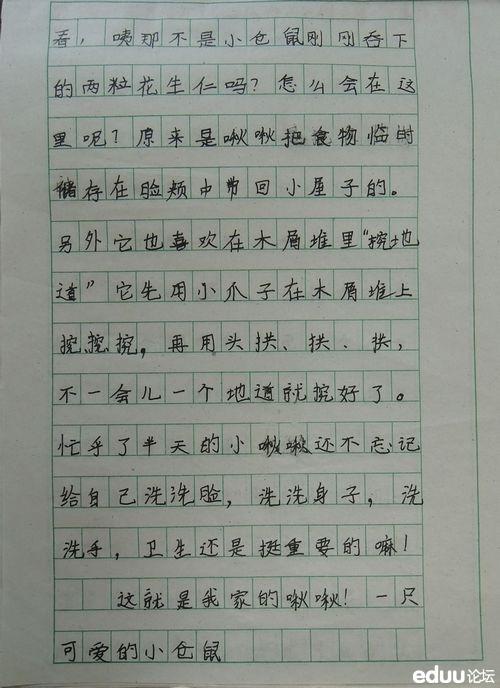 看，咦那不是小仓鼠刚刚吞下
的两粒花生仁吗？怎么会在这
里呢？原来是啾啾把食物临时
储存在脸颊中带回小屋子的。
另外它也喜欢在木屑堆里“挖地
道”它先用小爪子在木屑堆上
挖挖挖，再用头拱、拱、拱，
不一会儿一个地道就挖好了。
忙乎了半天的小啾啾还不忘记
给自己洗洗脸，洗洗身子，洗
洗手，卫生还是挺重要的嘛！
这就是我家的啾啾！一只
可爱的小仓鼠
eduu论坛